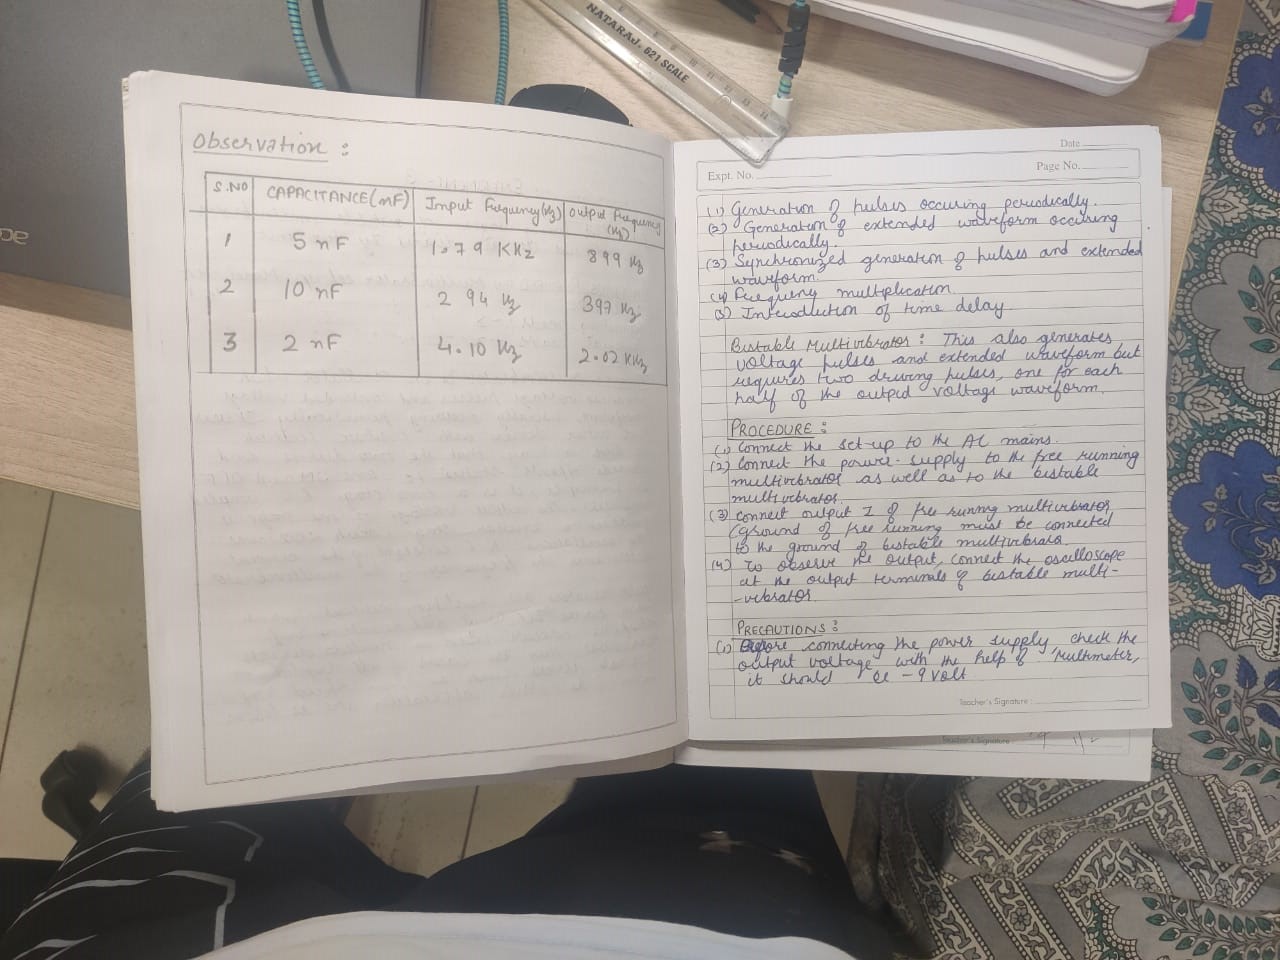 NATARAJ. 621 SCALE
Observation :
S.NO CAPACITANCE(nF) Input Frequency(Hz) Output Frequency (Hz)
1 5 nF 1.79 KHz 899 Hz
2 10 nF 2 94 Hz 397 Hz
3 2 nF 4.10 Hz 2.02 KHz
Date
Expt. No. Page No.
(1) Generation of pulses occuring periodically.
(2) Generation of extended waveform occuring
periodically.
(3) Synchronized generation of pulses and extended
waveform.
(4) Frequency multiplication.
(5) Introduction of time delay
Bistable Multivibrator : This also generates
voltage pulses and extended waveform but
requires two driving pulses, one for each
half of the output voltage waveform.
PROCEDURE :
(1) Connect the set-up to the AC mains.
(2) Connect the power-supply to the free running
multivibrator as well as to the bistable
multivibrator.
(3) Connect output I of free running multivibrator
(ground of free running must be connected
to the ground of bistable multivibrator.
(4) To observe the output, connect the oscilloscope
at the output terminals of bistable multi-
-vibrator.
PRECAUTIONS :
(1) Before connecting the power supply check the
output voltage with the help of multimeter,
it should be -9 volt
Teacher's Signature :
Teacher's Signature